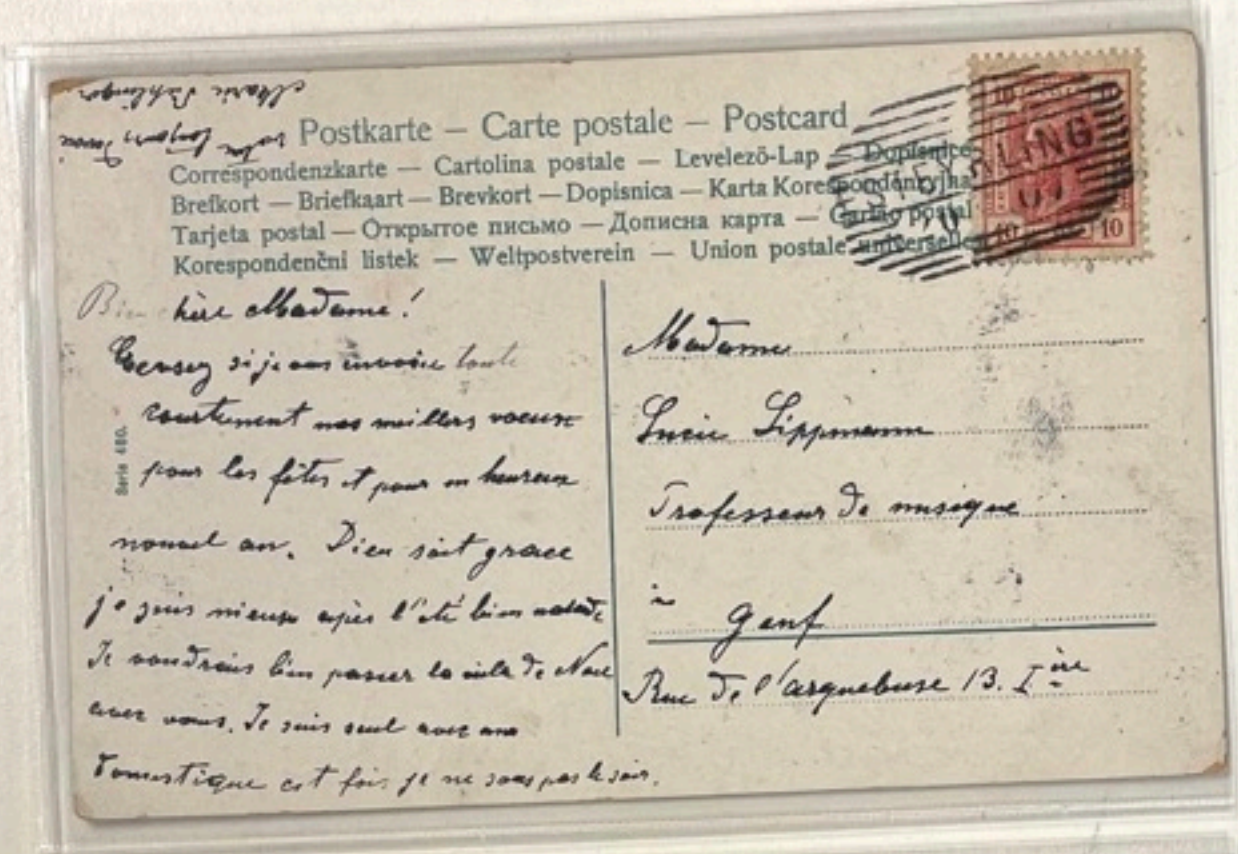 Postkarte – Carte postale – Postcard
Correspondenzkarte — Cartolina postale — Levelező-Lap — Dopisnice
Brefkort — Briefkaart — Brevkort — Dopisnica — Karta Korespondencyjna
Tarjeta postal — Открытое письмо — Дописна карта — Cartão postal
Korespondenční listek — Weltpostverein — Union postale universelle
10 10
10 10
Bien chère Madame!
si je vous envoie toute
nos meillers voeux
pour les fêtes et pour un heureux
nouvel an. Dieu soit grace
je suis mieux après l'été bien malade
Je voudrais bien passer la de Noel
avec vous. Je suis seul avec une
domestique cet fois je ne sors pas le soir.
votre toujours
Marie
Serie 480.
Madame
Lucie Lippmann
Professeur de musique
à Genf
Rue de l'arquebuse 13. Ière